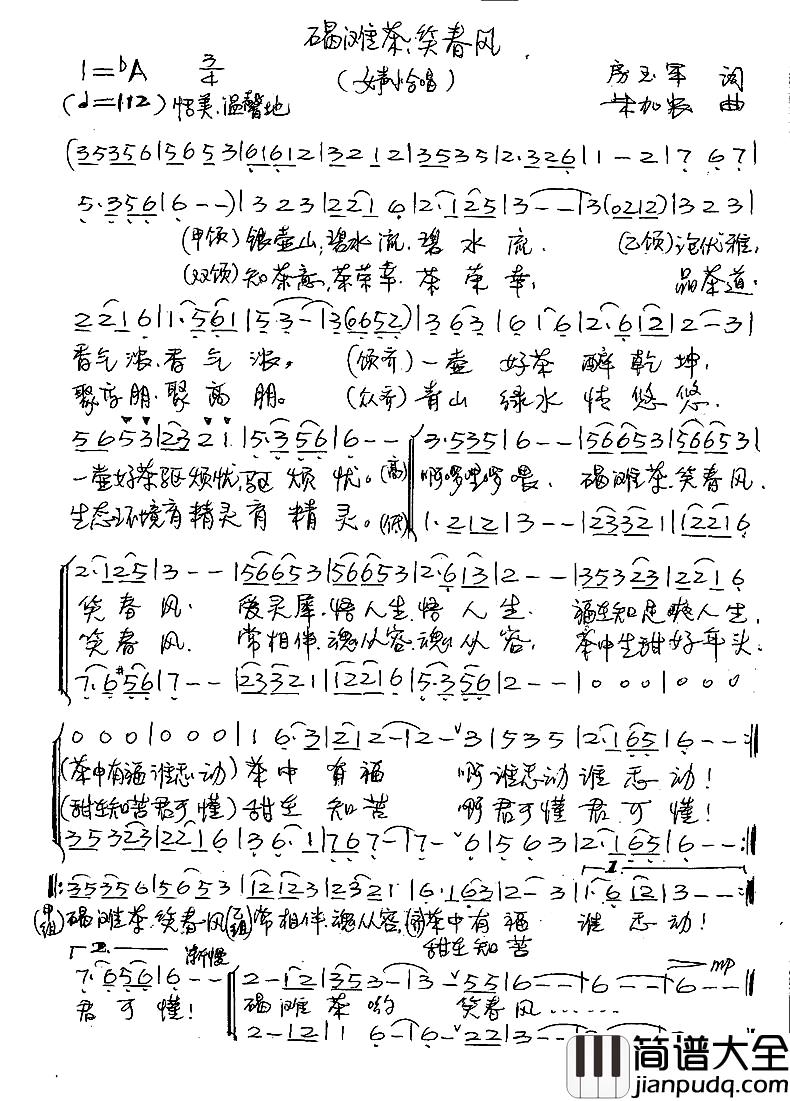 碣滩茶,笑春风
1=♭A 3/4 (女声小合唱) 房玉军 词
(♩=112) 恬美.温馨地 宋加农 曲
(35356|56053|61612|3212|35353|2·326|1-2|767|
5·356|6--)|323|2216|2·125|3--|3(0212)|323|
(甲领)银壶山,碧水流.碧水流. (乙领)泡优雅,
(双领)知茶意,茶荣幸.茶荣幸, 品茶道.
2216|1·561|5·3-|3(6652)|363|616|2·612|2-3|
香气浓.香气浓。 (领齐)一壶好茶醉乾坤,
聚高朋.聚高朋。 (众齐)青山绿水情悠悠.
5653|2321|5·356|6--|3·535|6--|566653|566653|
一壶好茶驱烦忧,驱烦忧。(高) 啊啰哩啰喂. 碣滩茶.笑春风.
生态环境育精灵育精灵。(低) 1·212|3--|23321|12216
2·125|3--|566653|566653|2·613|2--|35323|2216
笑春风. 爱灵犀.悟人生.悟人生. 福至知足爽人生,
笑春风. 常相伴.魂从容.魂从容, 茶中生甜好年头.
7·6#56|7--|23321|12216|5·356|2--|000|000
000|000|16·3|212-|2-3|535|2·165|6--:||
(茶中有福谁感动)茶中有福 啊谁感动谁感动!
(甜至知苦君可懂)甜至知苦 啊君可懂君可懂!
35323|2216|36·1|767-|7-6|563|2·165|6--:||
1.
||:35356|56053|12123|2321|6·163|2-3|1·612|3--:||
(甲组)碣滩茶.笑春风(乙组)常相伴.魂从容,(齐)茶中有福 谁感动!
2. 渐慢 甜至知苦 mp
7·656|6--|2-12|353-|3-|556-|6-|-6--||
君可懂! 碣滩茶哟 笑春风……
2-12|16-|6-2|223-|3--|3--||
简谱大全
jianpudq.com